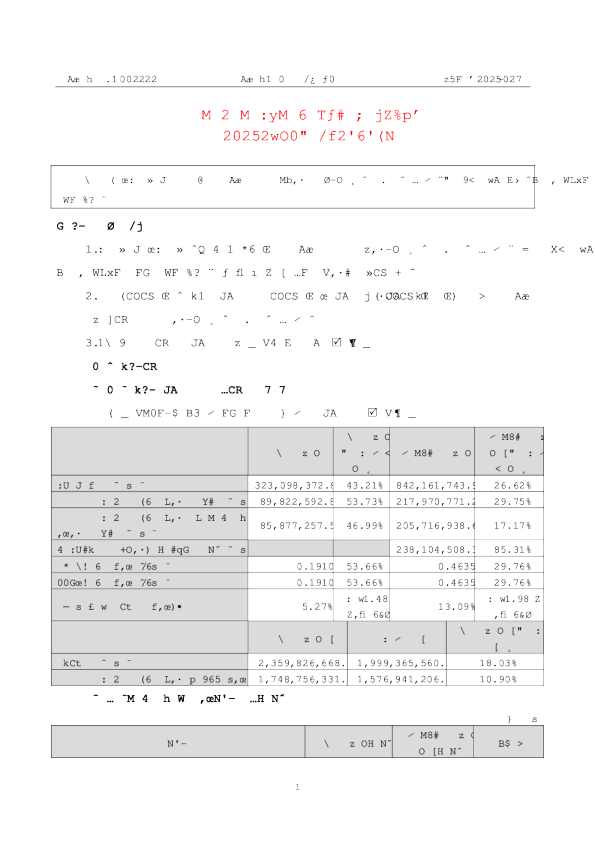 Aæ h .1002222 Aæ h1 0 /¿ ƒ0 z5F ʹ 2025-027
M 2 M :yM 6 Tƒ# ; jZ%pʹ
20252wO0" /f2'6'(N
\ ( œ: » J @ Aæ Mb,· Ø-O ¸ ˆ . ˆ … ⁄ ¨" 9< wA E› ˆB , WLxF
WF %? ˜
G ?- Ø /j
1.: » J œ: » ˆQ 4 1 *6 Œ Aæ z,·-O ¸ ˆ . ˆ … ⁄ ¨ = X< wA
B , WLxF FG WF %? ¨ ƒ fl ı Z [ …F V,·# »CS + ˜
2. (COCS Œ ˆ k1 JA COCS Œ œ JA Œ) > Aæ
z ]CR ,·-O ¸ ˆ . ˆ … ⁄ ˜
3.1\ 9 CR JA z _ V4 E A ☑ ¶ _
0 ˆ k?-CR
˜ 0 ˜ k?- JA …CR 7 7
( _ VM0F-$ B3 ⁄ FG F } ⁄ JA ☑ V¶ _
\ z O \ z O " : ⁄ < O ¸ ⁄ M8# z O ⁄ M8# z O [" : ⁄ < O ¸
:U J f ˜ s ˜ 323,098,372.8 43.21% 842,161,743.9 26.62%
: 2 (6 L,· Y# ˜ s 89,822,592.8 53.73% 217,970,771.2 29.75%
: 2 (6 L,· L M 4 h ,œ,· Y# ˜ s ˜ 85,877,257.5 46.99% 205,716,938.6 17.17%
4 :U#k +O,·) H #qG N˝ ˜ s 238,104,508.3 85.31%
* \! 6 f,œ 76s ˜ 0.1910 53.66% 0.4635 29.76%
00Gœ! 6 f,œ 76s ˜ 0.1910 53.66% 0.4635 29.76%
— s £ w Ct f,œ)• 5.27% : w1.48 Z,fi 6&Ø 13.09% : w1.98 Z ,fi 6&Ø
\ z O [ : ⁄ [ \ z O [" : [ ¸
kCt ˜ s ˜ 2,359,826,668. 1,999,365,560. 18.03%
: 2 (6 L,· p 965 s,œ 1,748,756,331. 1,576,941,206. 10.90%
˜ … ¨M 4 h W ,œN'- …H N˝
} s
N'- \ z OH N˝ ⁄ M8# z O [H N˝ B$ >
1